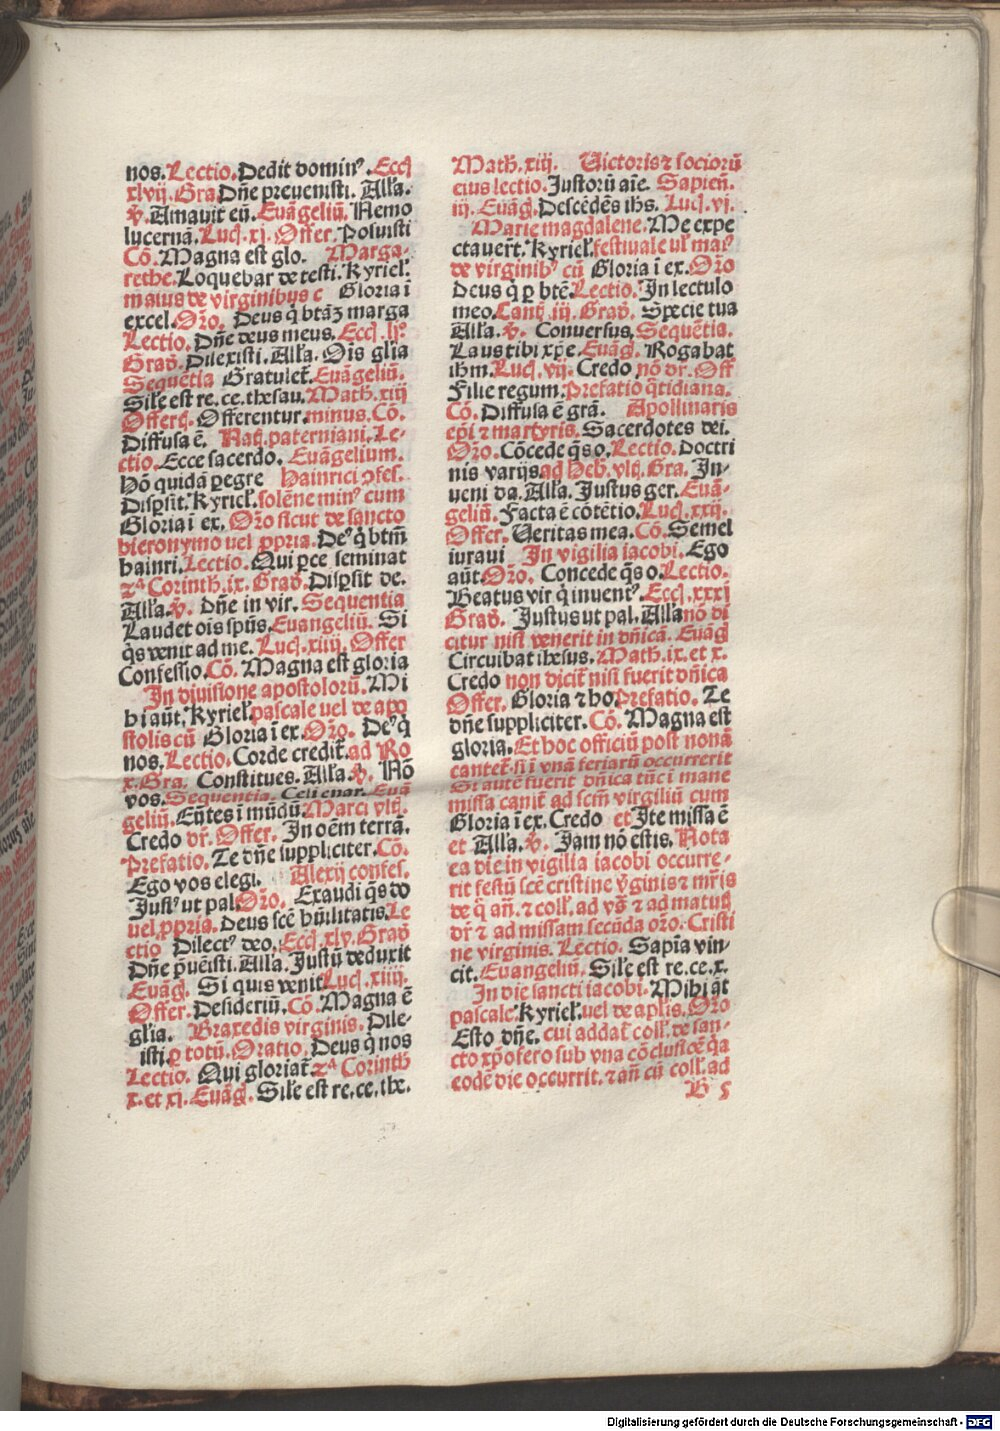 nos. Lectio. Dedit domin⁹. Eccl
xlvij. Gra Dñe preuenisti. Alľa.
ꝟ. Amauit eū. Euãgeliū. Nemo
lucernã. Luc̨. xj. Offer. Posuisti
Cõ. Magna est glo. Marga-
rethe. Loquebar de testi. Kyriel.
maius de virginibus c Gloria ī
excel. Oro. Deus q̇ btãʒ marga
Lectio. Dñe deus meus. Eccl. lj⁰
Grad. Dilexisti. Alľa. Oīs glia
Sequētia Gratulet̄. Euãgeliū.
Sil̄e est re. ce. thesau. Math. xiij
Offerq. Offerentur. minus. Cõ.
Diffusa ē. Nat̨. paterniani. Le-
ctio. Ecce sacerdo. Euãgelium.
Hõ quidã ꝑegre Hainrici ɔfes.
Disꝑsit. Kyriel. solēne min⁹ cum
Gloria ī ex. Oro sicut de sancto
hieronymo uel ꝓpria. De⁹ q̇ btm̄
hainri. Lectio. Qui ꝑce seminat
2ᵃ Corinth. ix. Grad. Disꝑsit de.
Alľa. ꝟ. Dñe in vir. Sequentia
Laudet oīs spūs. Euangeliū. Si
q̇s venit ad me. Luc̨. xiiij. Offer
Confessio. Cõ. Magna est gloria
In diuisione apostolorū. Mi
hi aūt. Kyriel. pascale uel de apo
stolis cū Gloria ī ex. Oro. De⁹ q̇
nos. Lectio. Corde credit̄. ad Ro
x. Gra. Constitues. Alľa. ꝟ. Nō
vos. Sequentia. Celi enar. Euã
geliū. Eūtes ī mūdū. Marci vlt̨.
Credo dr̄. Offer. In oēm terrã.
Prefatio. Te dñe suppliciter. Cõ.
Ego vos elegi. Alexij confes.
Just⁹ ut pal. Oro. Exaudi q̄s do
uel ꝓpria. Deus scē hūilitatis. Le
ctio Dilect⁹ deo. Eccl. xlv. Grad
Dñe p̄uēisti. Alľa. Justū deduxit
Euãg. Si quis venit Luc̨. xiiij.
Offer. Desideriū. Cõ. Magna ē
gľia. Braxedis virginis. Dile-
isti. ꝑ totū. Oratio. Deus q̇ nos
Lectio. Qui gloriat̄. 2ᵃ Corinth
x. et xj. Euãg. Sil̄e est re. ce. the.
Math. xiij. Victoris ⁊ sociorū
eius lectio. Justorū aīe. Sapien̄.
iij. Euãg. Descēdēs ihs. Luc̨. vj.
Marie magdalene. Me expe
ctauerūt. Kyriel. festiuale ul̄ mai⁹
de virginib⁹ cū Gloria ī ex. Oro
Deus q̇ ꝑ btē. Lectio. In lectulo
meo. Cant̨. iij. Grad. Specie tua
Alľa. ꝟ. Conuersus. Sequētia.
Laus tibi xp̄e. Euãg. Rogabat
ihm. Luc̨. vij. Credo nō dr̄. Off
Filie regum. Prefatio q̄tidiana.
Cõ. Diffusa ē grã. Apollinaris
ep̄i ⁊ martyris. Sacerdotes dei.
Oro. Cõcede q̄s o. Lectio. Doctri
nis varijs. ad Heb. vlt̨. Gra. In-
ueni da. Alľa. Justus ger. Euã-
geliū. Facta ē cõtētio. Luc̨. xxij.
Offer. Veritas mea. Cõ. Semel
iuraui In vigilia iacobi. Ego
aūt. Oro. Concede q̄s o. Lectio.
Beatus vir q̇ inuent⁹. Eccl. xxxj
Grad. Justus ut pal. Alľa nō di
citur nisi venerit in dn̄ica. Euãg
Circuibat ihesus. Math. ix. et x.
Credo non dicit̄ nisi fuerit dn̄ica
Offer. Gloria ⁊ ho Prefatio. Te
dñe suppliciter. Cõ. Magna est
gloria. Et hoc officiū post nonã
cantet̄. si ī vna feriarū occurrerit
Si autē fuerit dn̄ica tūc ī mane
missa canit̄ ad scm̄ virgiliū cum
Gloria ī ex. Credo et Ite missa ē
et Alľa. ꝟ. Jam nō estis. Nota
ea die in vigilia iacobi occurre-
rit festū scē cristine v̄ginis ⁊ mr̄is
de q̇ an̄. ⁊ coll. ad vs̄ ⁊ ad matut̨
dr̄ ⁊ ad missam secūda oro. Cristi
ne virginis. Lectio. Sapīa vin-
cit. Euangeliū. Sil̄e est re. ce. x.
In die sancti iacobi. Mihi aūt
pascale. Kyriel. uel de aplis. Oro
Esto dñe. cui addat̄ coll. de san-
cto xp̄ofero sub vna cõclusiōe q̇a
eodē die occurrit. ⁊ an̄ cū coll. ad
B 5
Digitalisierung gefördert durch die Deutsche Forschungsgemeinschaft - DFG